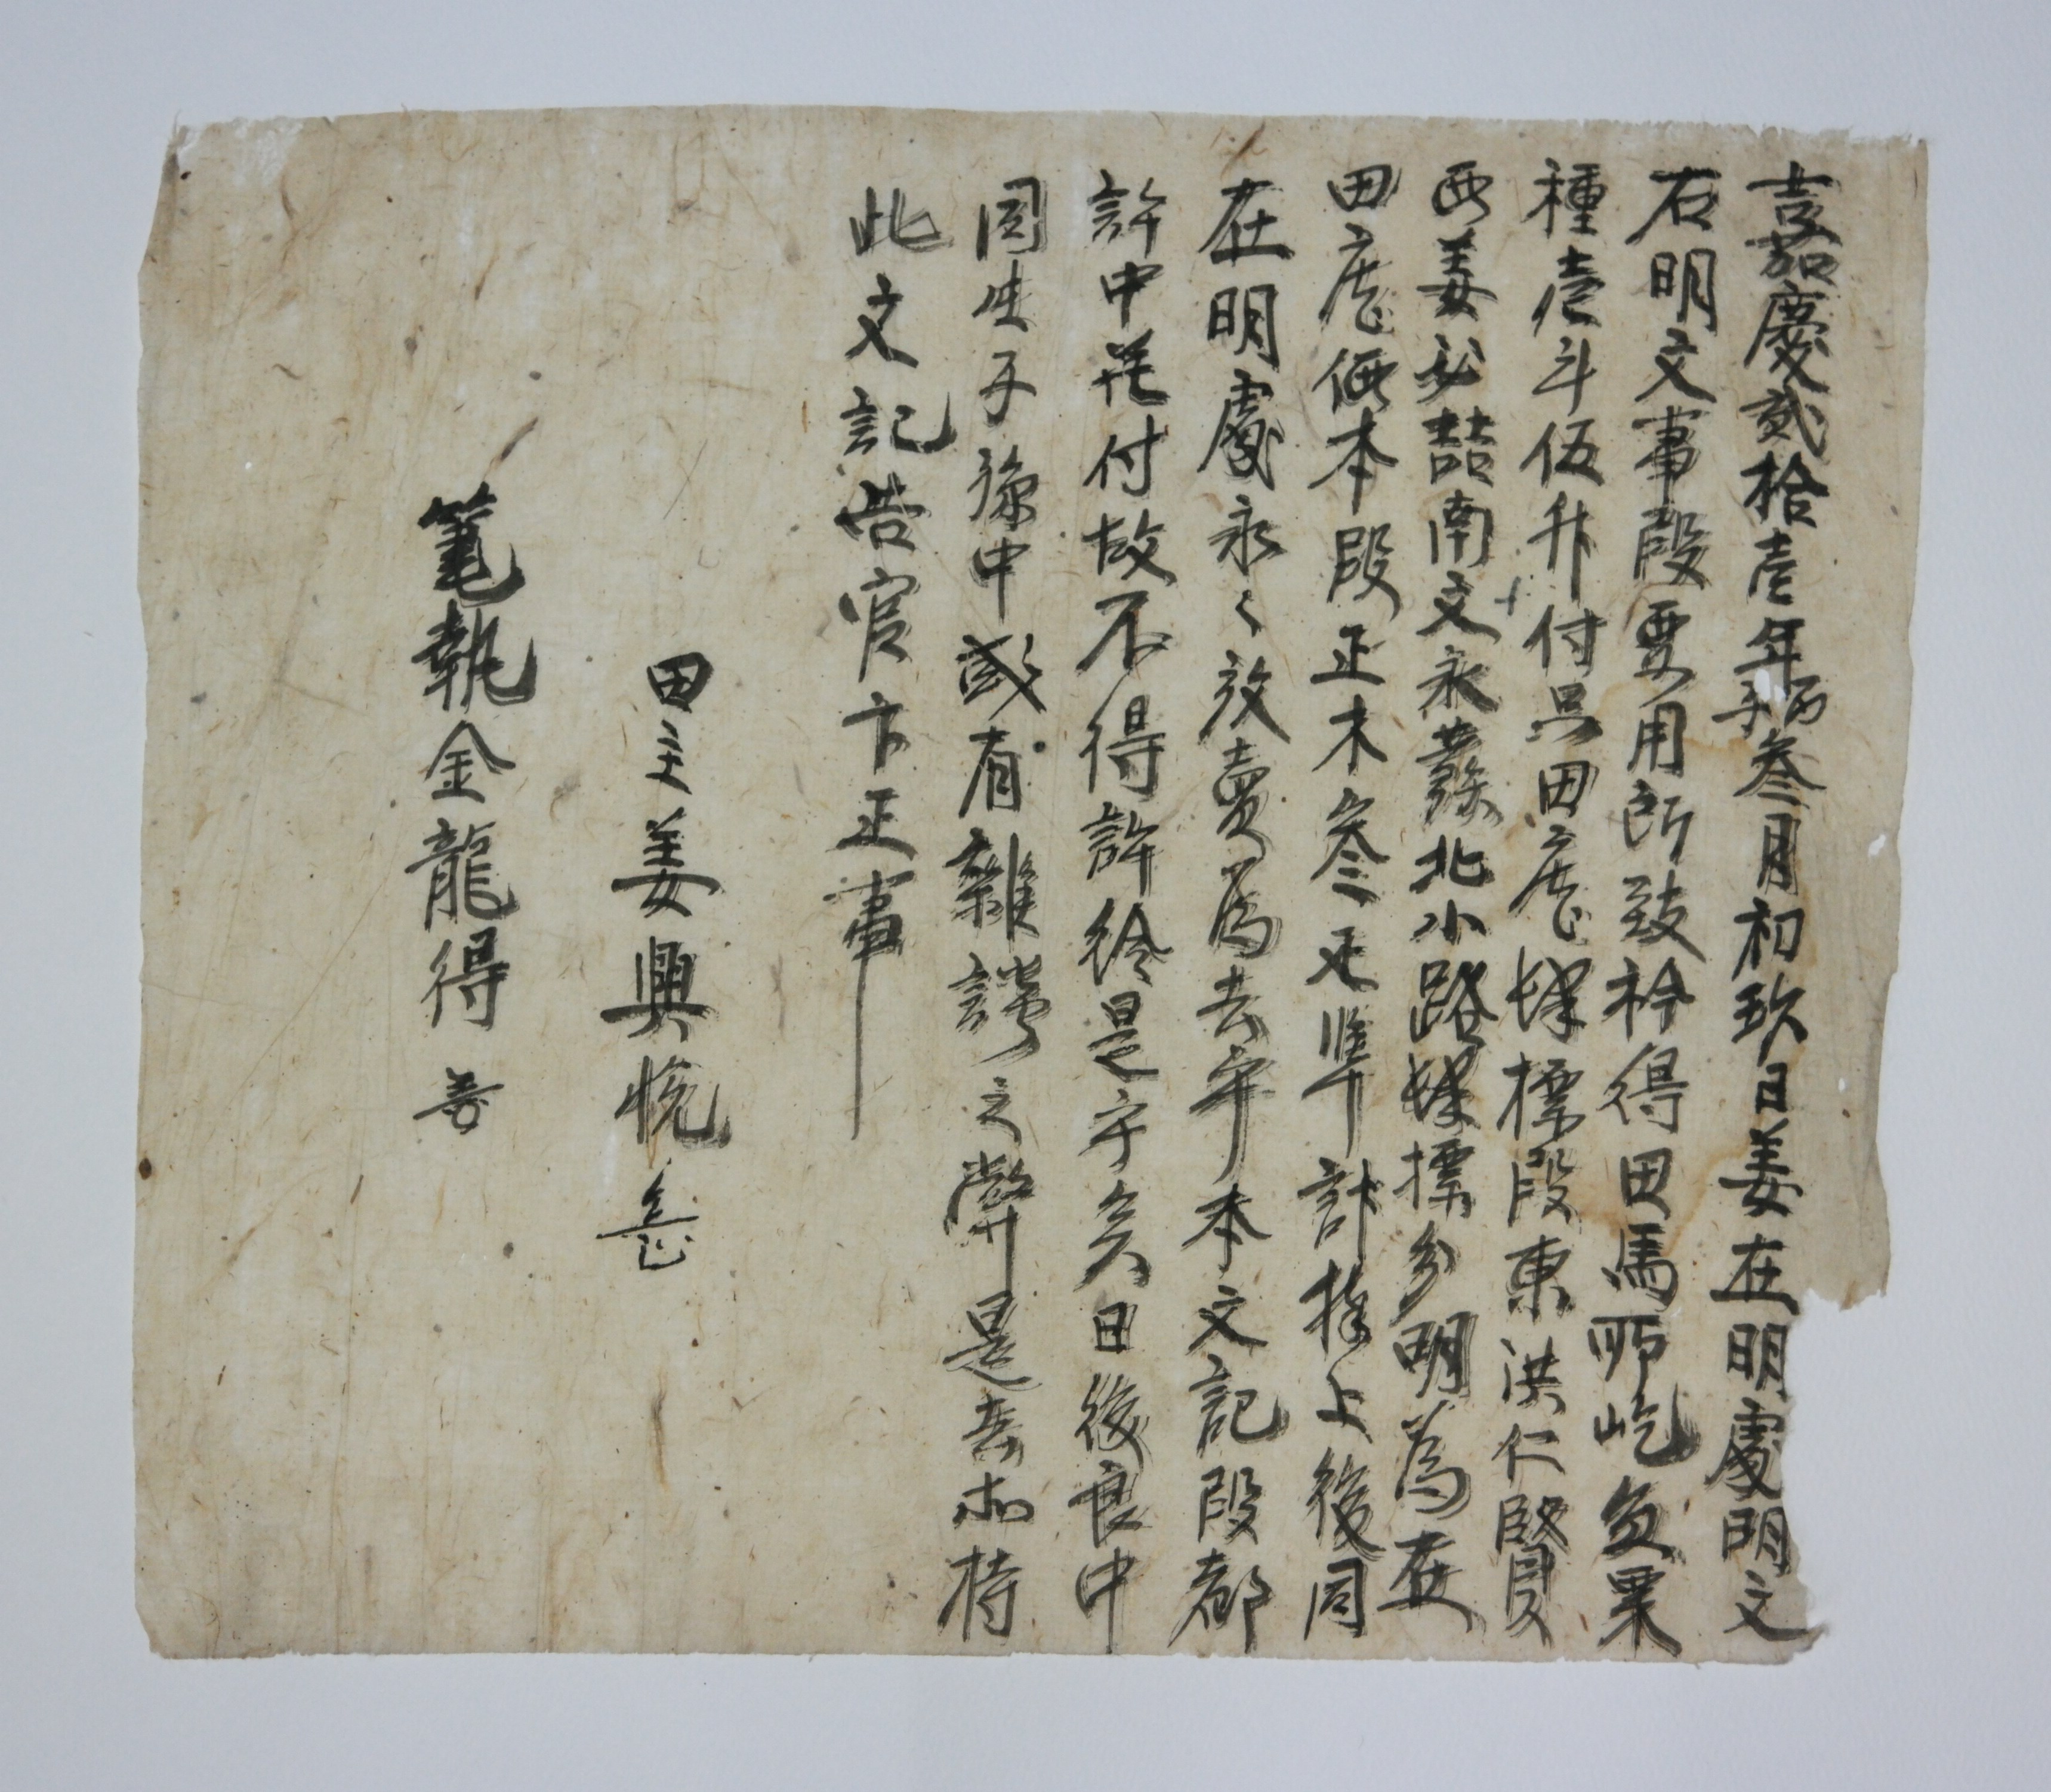 嘉慶貳拾壹年丙子叁月初玖日姜在明處明文
右明文事段要用所致衿得田馬邱屹負栗
種壹斗伍升付只田庫㙜標段東洪仁賢
西姜必喆南文永蕃北小路㙜標分明爲在
田庫價本段正木叁疋準計捧上後同
在明處永〻放賣爲去乎本文記段都
許中幷付故不得許給是乎矣日後良中
同生子孫中或有雜談之弊是去所持
此文記告官卞正事
田主姜興悅
筆執金龍得